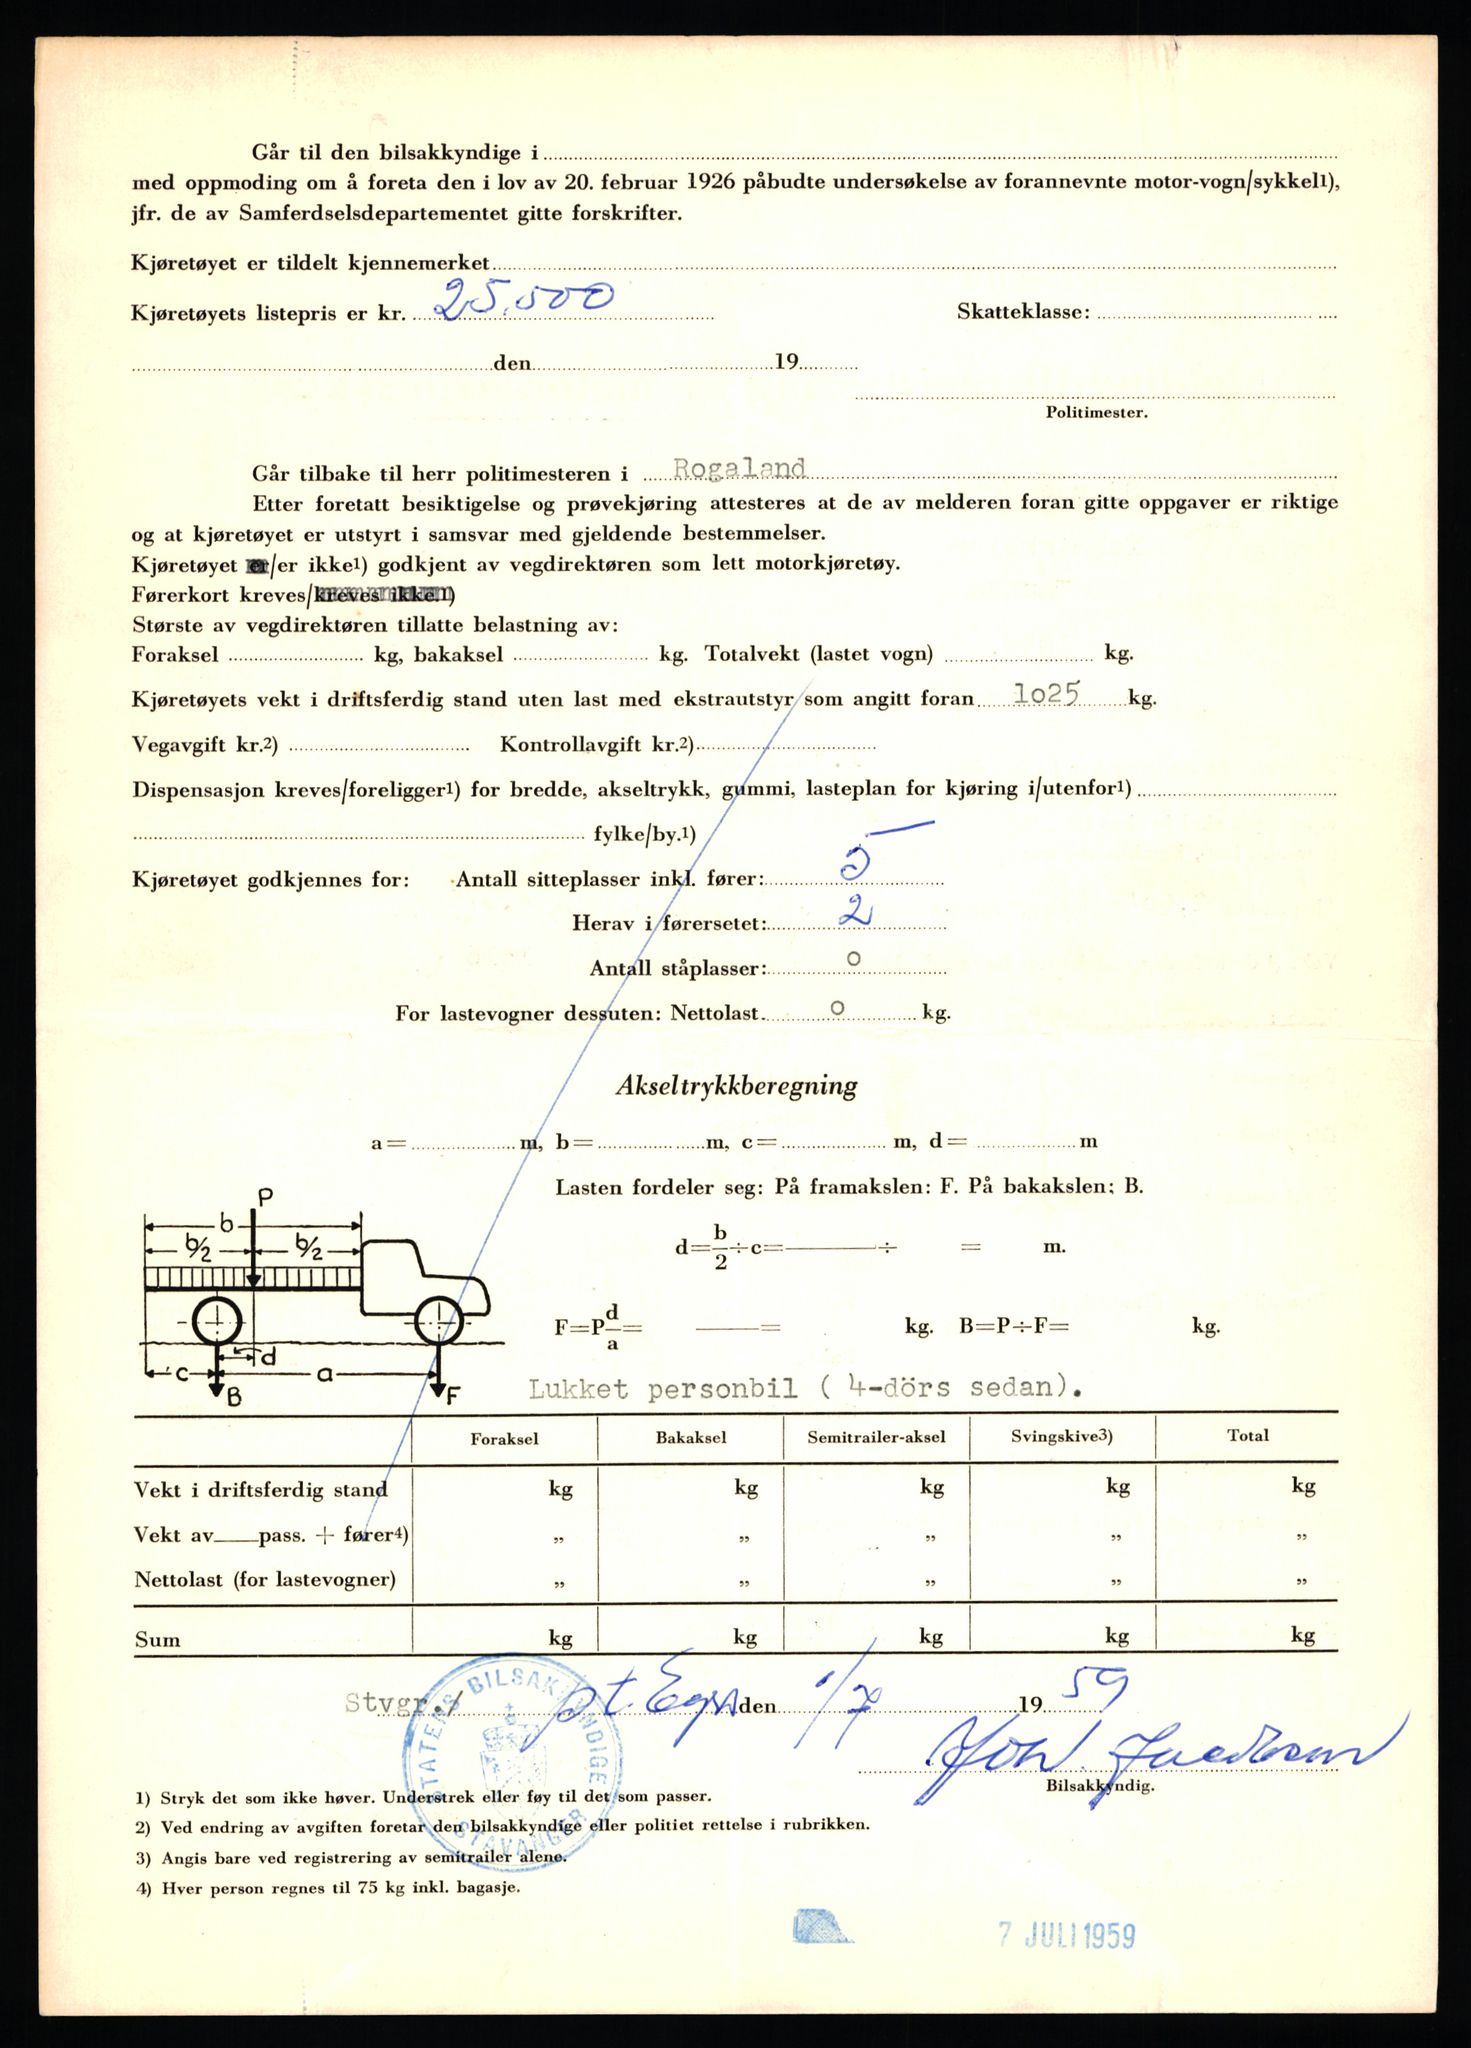 Går til den bilsakkyndige i
med oppmoding om å foreta den i lov av 20. februar 1926 påbudte undersøkelse av forannevnte motor-vogn/sykkel1),
jfr. de av Samferdselsdepartementet gitte forskrifter.
Kjøretøyet er tildelt kjennemerket
Kjøretøyets listepris er kr. 25.500 Skatteklasse:
den 19
Politimester.
Går tilbake til herr politimesteren i Rogaland
Etter foretatt besiktigelse og prøvekjøring attesteres at de av melderen foran gitte oppgaver er riktige
og at kjøretøyet er utstyrt i samsvar med gjeldende bestemmelser.
Kjøretøyet er/er ikke1) godkjent av vegdirektøren som lett motorkjøretøy.
Førerkort kreves/kreves ikke.1)
Største av vegdirektøren tillatte belastning av:
Foraksel kg, bakaksel kg. Totalvekt (lastet vogn) kg.
Kjøretøyets vekt i driftsferdig stand uten last med ekstrautstyr som angitt foran 1o25 kg.
Vegavgift kr.2) Kontrollavgift kr.2)
Dispensasjon kreves/foreligger1) for bredde, akseltrykk, gummi, lasteplan for kjøring i/utenfor1)
fylke/by.1)
Kjøretøyet godkjennes for: Antall sitteplasser inkl. fører: 5
Herav i førersetet: 2
Antall ståplasser: o
For lastevogner dessuten: Nettolast. o kg.
Akseltrykkberegning
a= m, b= m, c= m, d= m
Lasten fordeler seg: På framakslen: F. På bakakslen: B.
P
b
b/2 b/2
d=b/2÷c= ÷ = m.
F=Pd/a= = kg. B=P÷F= kg.
d
c a
B F
Lukket personbil ( 4-dörs sedan).
Foraksel Bakaksel Semitrailer-aksel Svingskive3) Total
Vekt i driftsferdig stand kg kg kg kg kg
Vekt av pass. + fører4) „ „ „ „ „
Nettolast (for lastevogner) „ „ „ „ „
Sum kg kg kg kg kg
Stvgr./ pt. Egrs den 1/7 19 59
STATENS BILSAKKYNDIGE
STAVANGER
Bilsakkyndig.
1) Stryk det som ikke høver. Understrek eller føy til det som passer.
2) Ved endring av avgiften foretar den bilsakkyndige eller politiet rettelse i rubrikken.
3) Angis bare ved registrering av semitrailer alene.
4) Hver person regnes til 75 kg inkl. bagasje.
7 JULI 1959